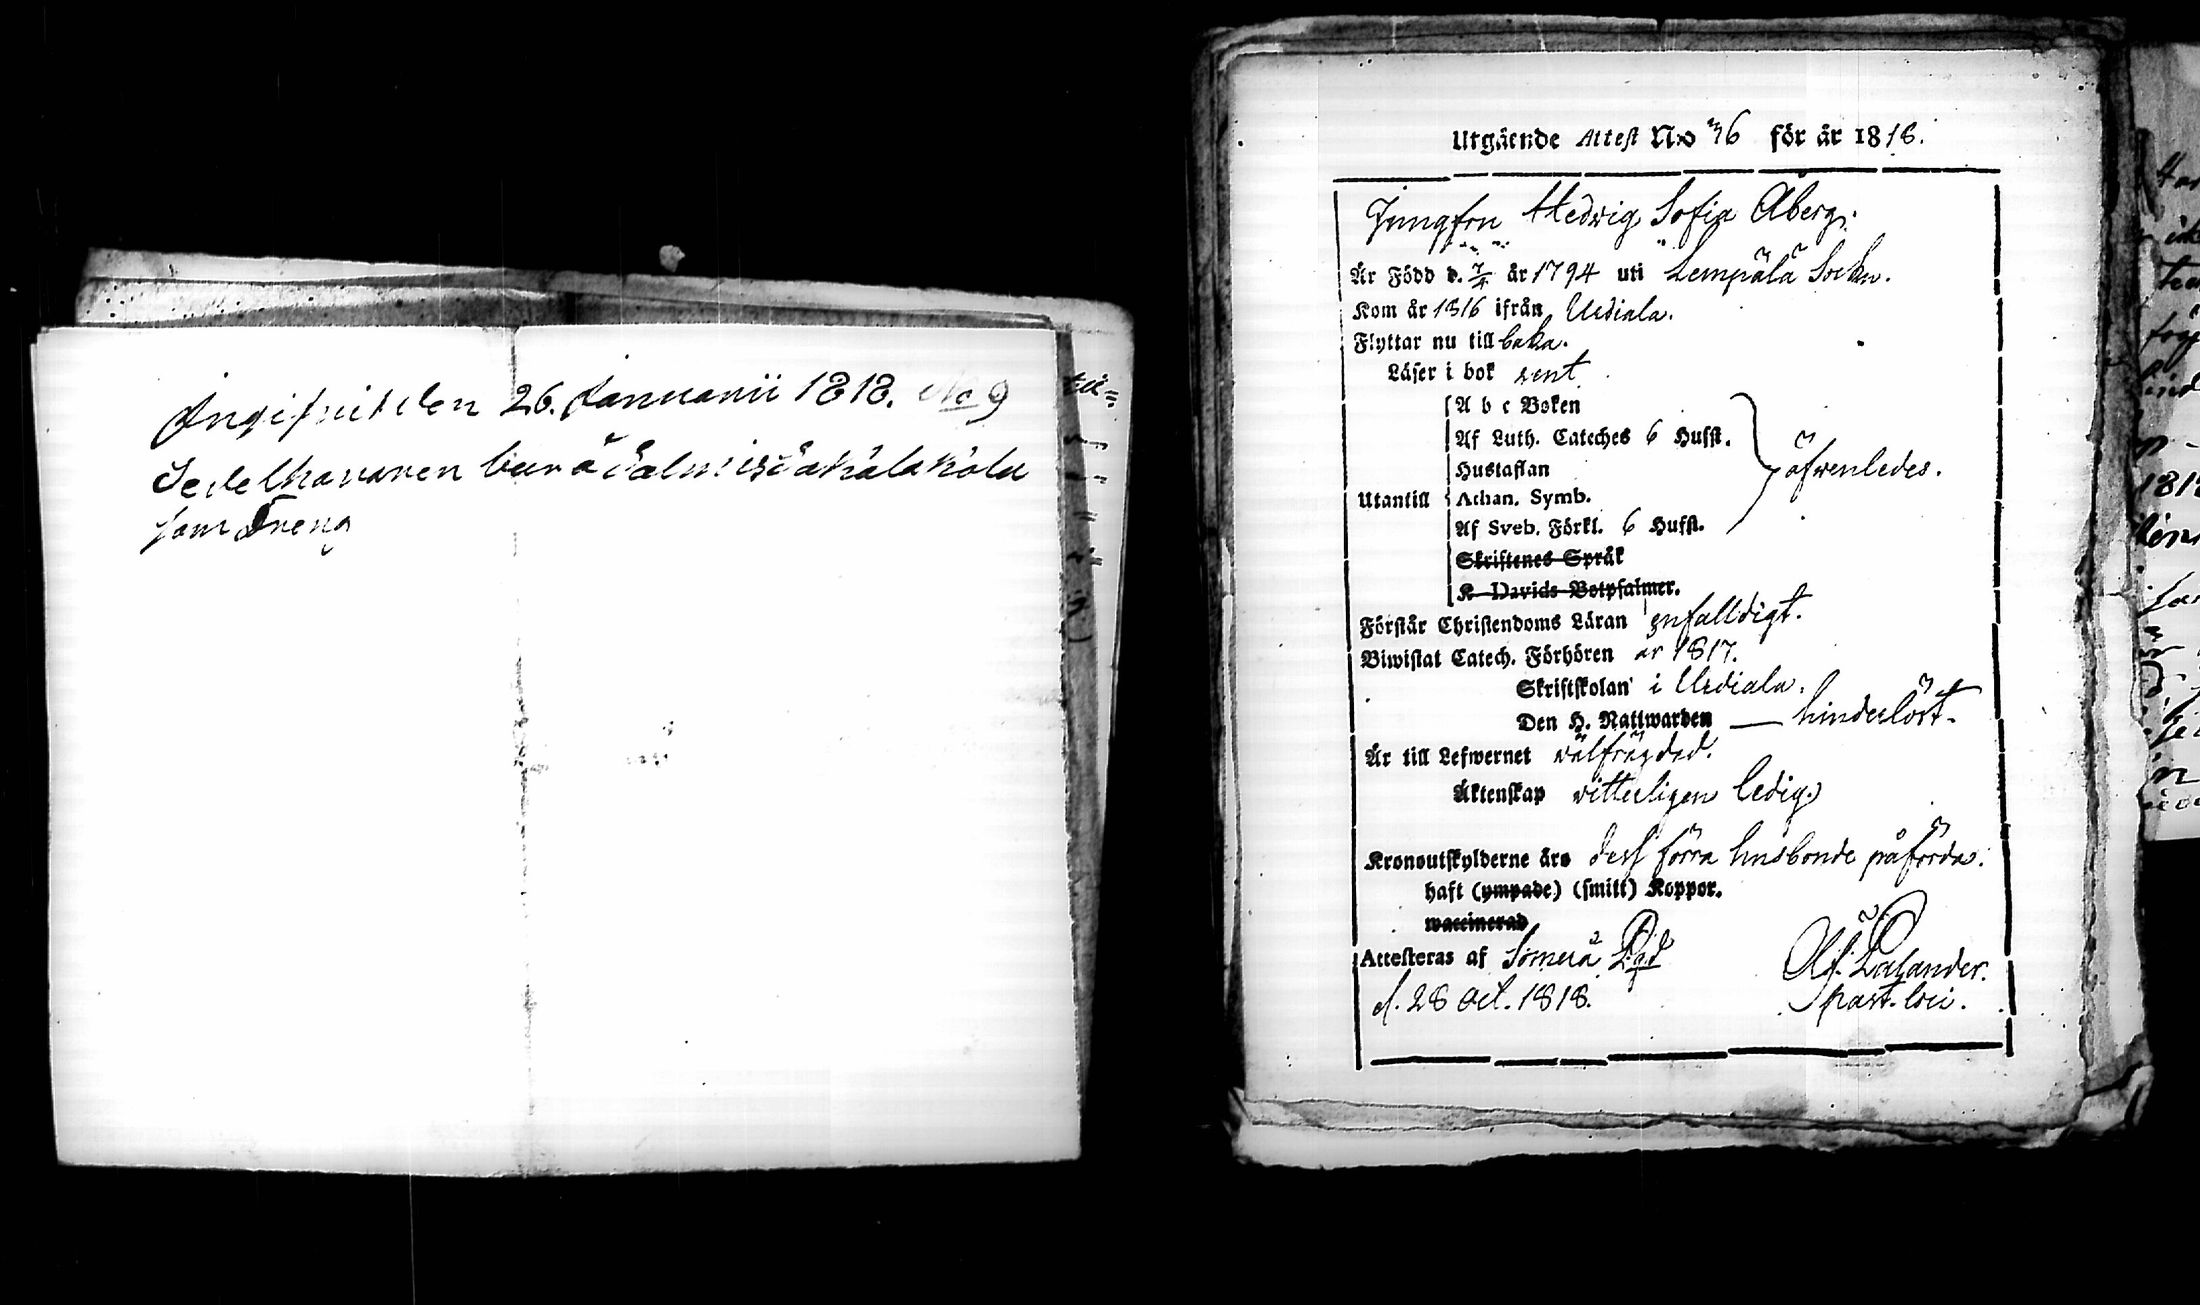 Ingifvit den 26. Januarii 1818. No 9
Sedelhavaren
som Dreng
Utgående Attest N:o 36 för år 1818.
Jungfru Hedvig Sofia Åberg.
Är Född d. 7/4 år 1794 uti Lempälä Sockn.
Kom år 1816 ifrån Urdiala.
Flyttar nu till baka.
Läser i bok rent
A b c Boken
Af Luth. Cateches 6 Hufst.
Hustaflan
öfwenledes.
Utantill Athan. Symb.
Af Sveb. Förkl. 6 Hufst.
Skriftenes Språk
K Davids Botpsalmer.
Förstår Christendoms Läran enfalldigt.
Biwistat Catech. Förhören år 1817.
Skriftskolan i Urdiala.
Den H. Nattwarden — hinderlöst.
Är till Lefwernet välfrägdad.
Äktenskap vitterligen ledig.
Kronoutskylderne äro dess förra husbonde påförda.
haft (ympade) (smitt) Koppor.
waccinerad
Attesteras af Somero Pgd
d. 28 Oct. 1818.
Palander.
past. loci.